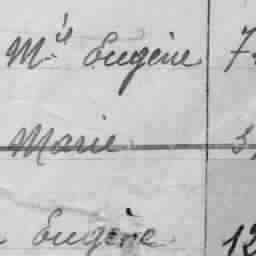 Mis Eugène 7
Marie 3
Eugène 12